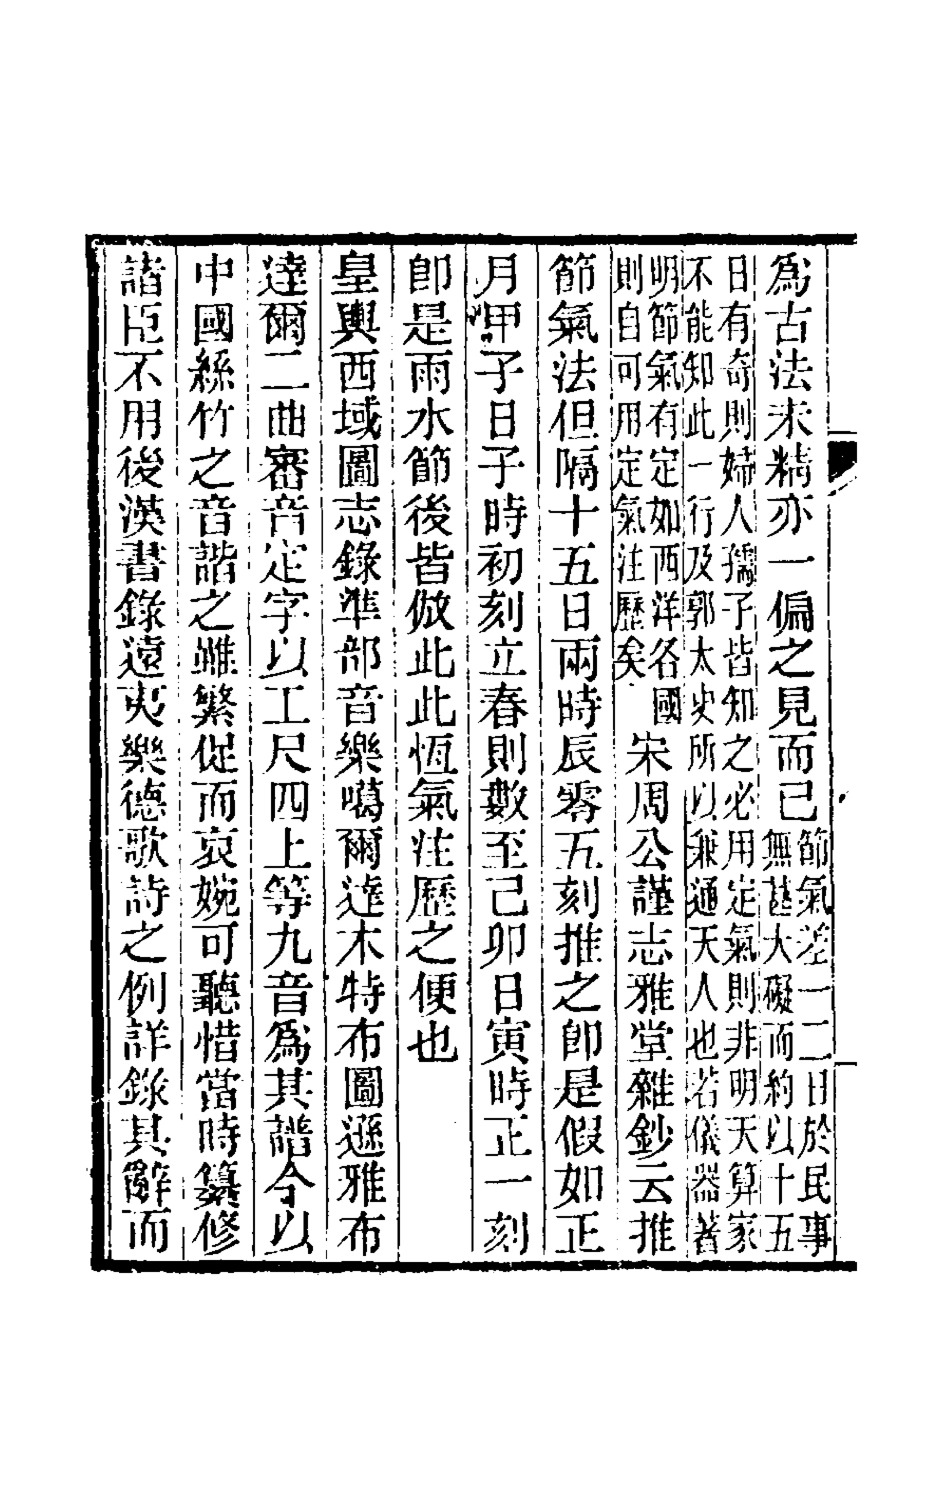 爲古法未精亦一偏之見而已節氣差一二日於民事
無甚大礙而約以十五
日有奇則婦人孺子皆知之必用定氣則非明天算家
不能知此一行及郭太史所以兼通天人也若儀器著
明節氣有定如西洋各國
則自可用定氣注歷矣
宋周公謹志雅堂雜鈔云推
節氣法但隔十五日兩時辰零五刻推之卽是假如正
月甲子日子時初刻立春則數至己卯日寅時正一刻
卽是雨水節後皆倣此此恆氣注歷之便也
皇輿西域圖志錄準部音樂噶爾達木特布圖遜雅布
達爾二曲審音定字以工尺四上等九音爲其譜今以
中國絲竹之音諧之雖繁促而哀婉可聽惜當時纂修
諸臣不用後漢書錄遠夷樂德歌詩之例詳錄其辭而